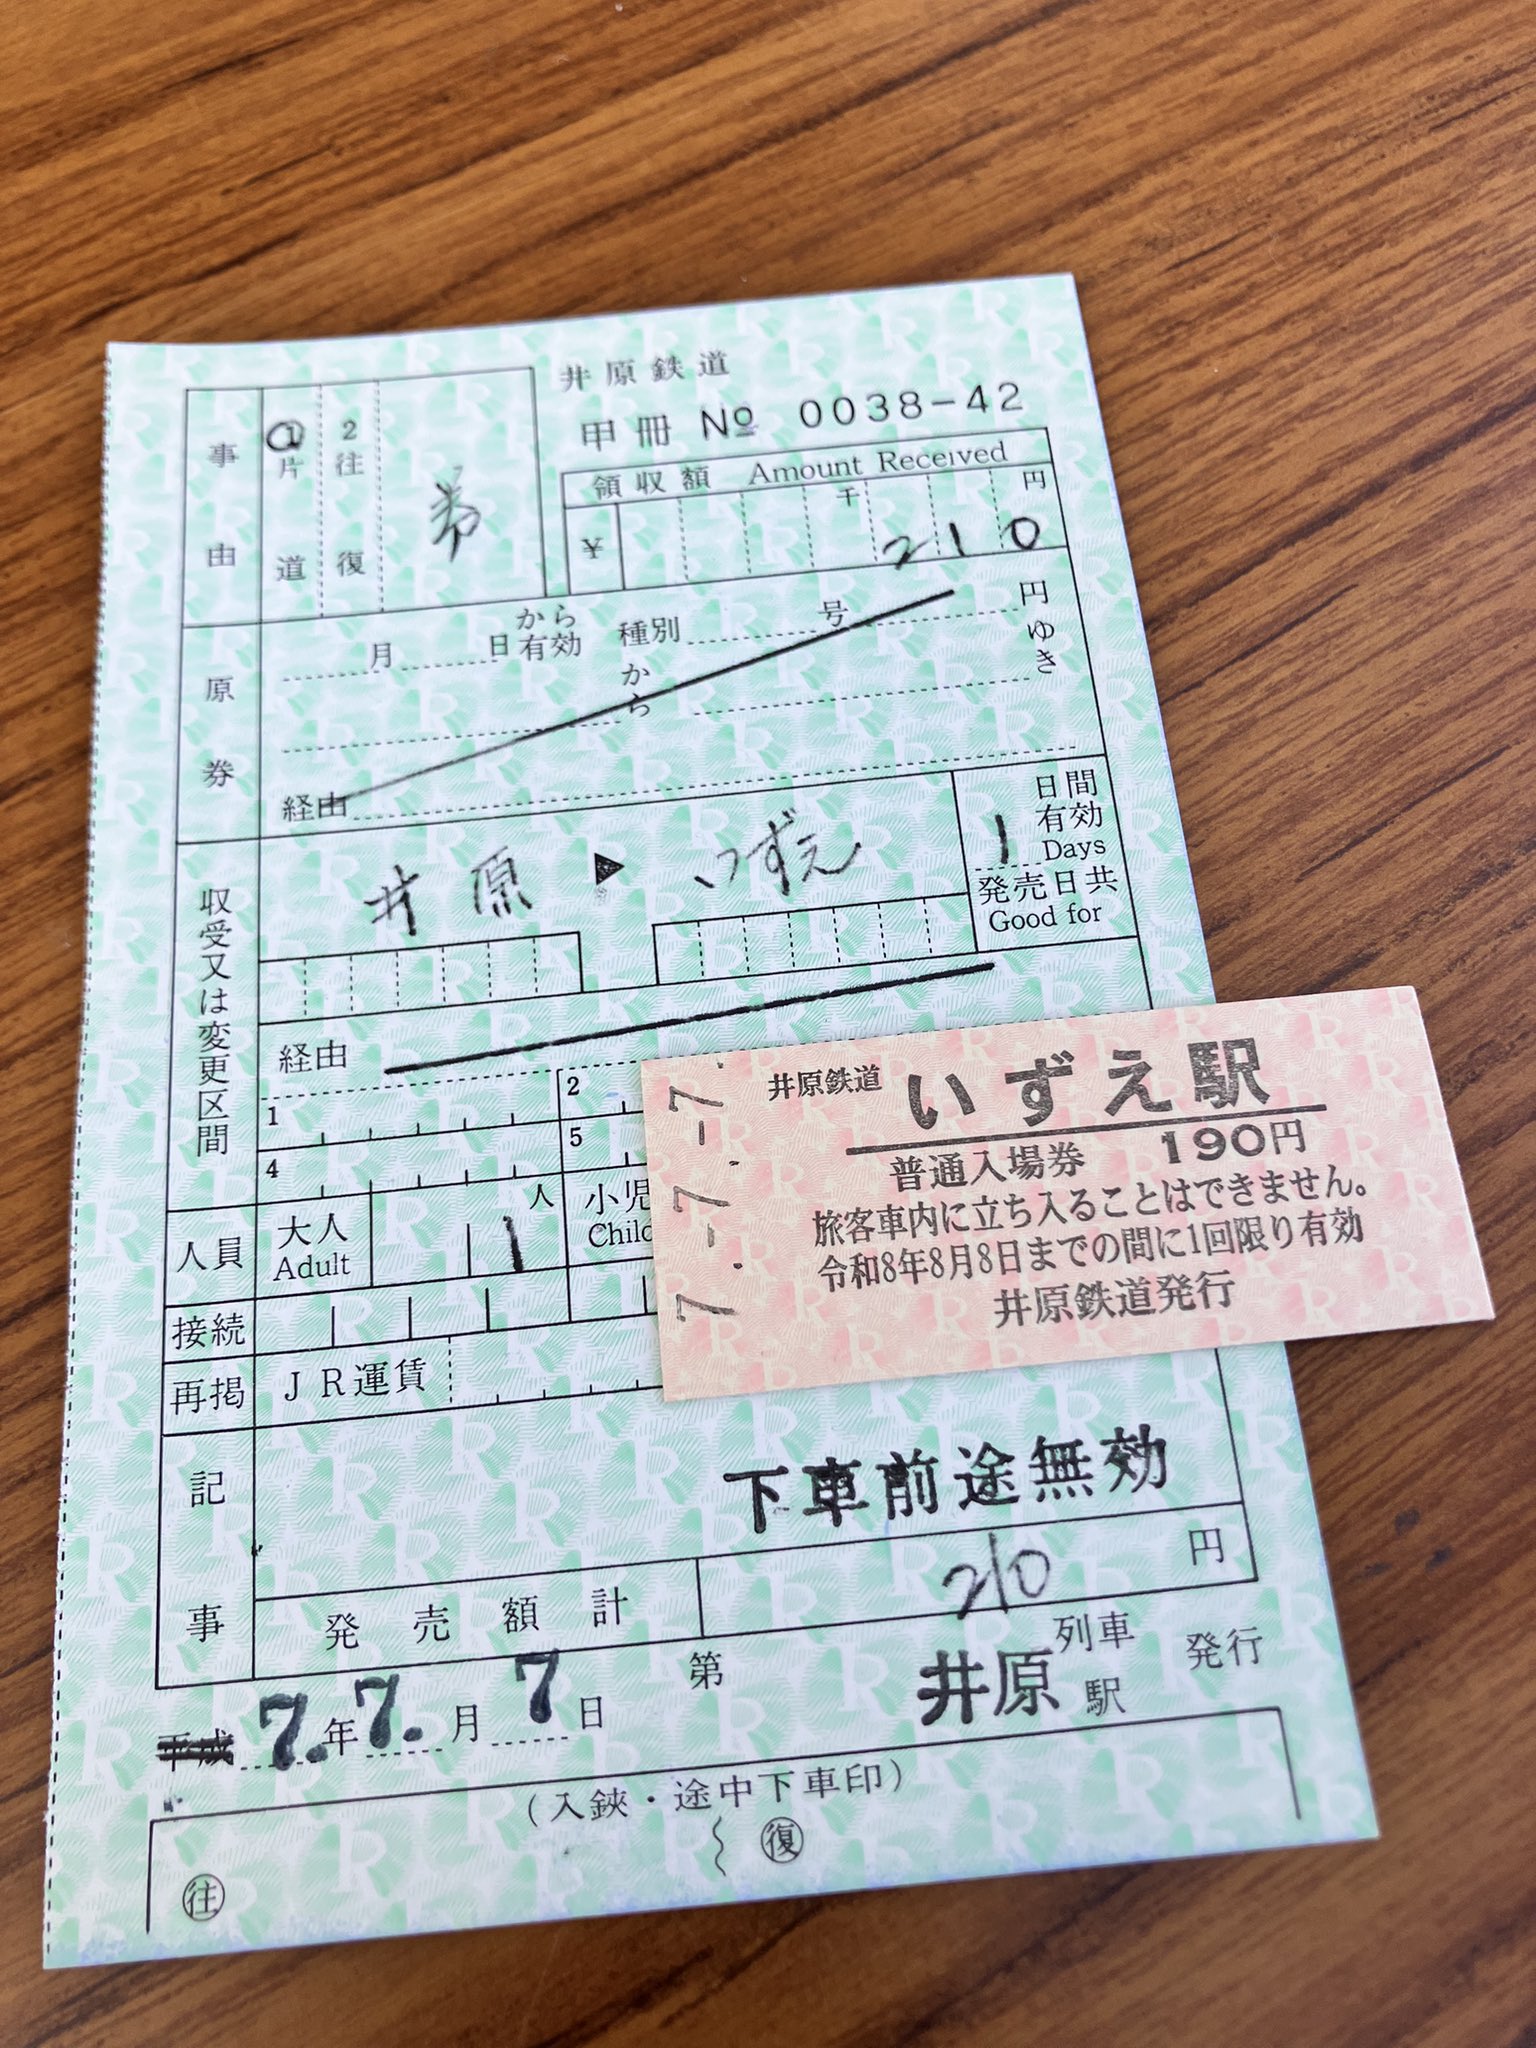 井原鉄道
甲冊 No 0038-42
領収額 Amount Received
千 円
¥ 210
事由
1 片道
2 往復
券
原券
月 日から有効 種別 号 円
から ゆき
経由
収受又は変更区間
井原 ▶ いずえ
1 日間有効 Days
発売日共 Good for
経由
1 2
4 5
人員
大人 Adult 1 人
小児
接続
再掲
JR運賃
記事
下車前途無効
発売額計 210 円
平成 7.年 7.月 7日 第 井原 列車 駅 発行
(入鋏・途中下車印)
往 復
7.-7.-7.
井原鉄道 いずえ駅
普通入場券 190円
旅客車内に立ち入ることはできません。
令和8年8月8日までの間に1回限り有効
井原鉄道発行